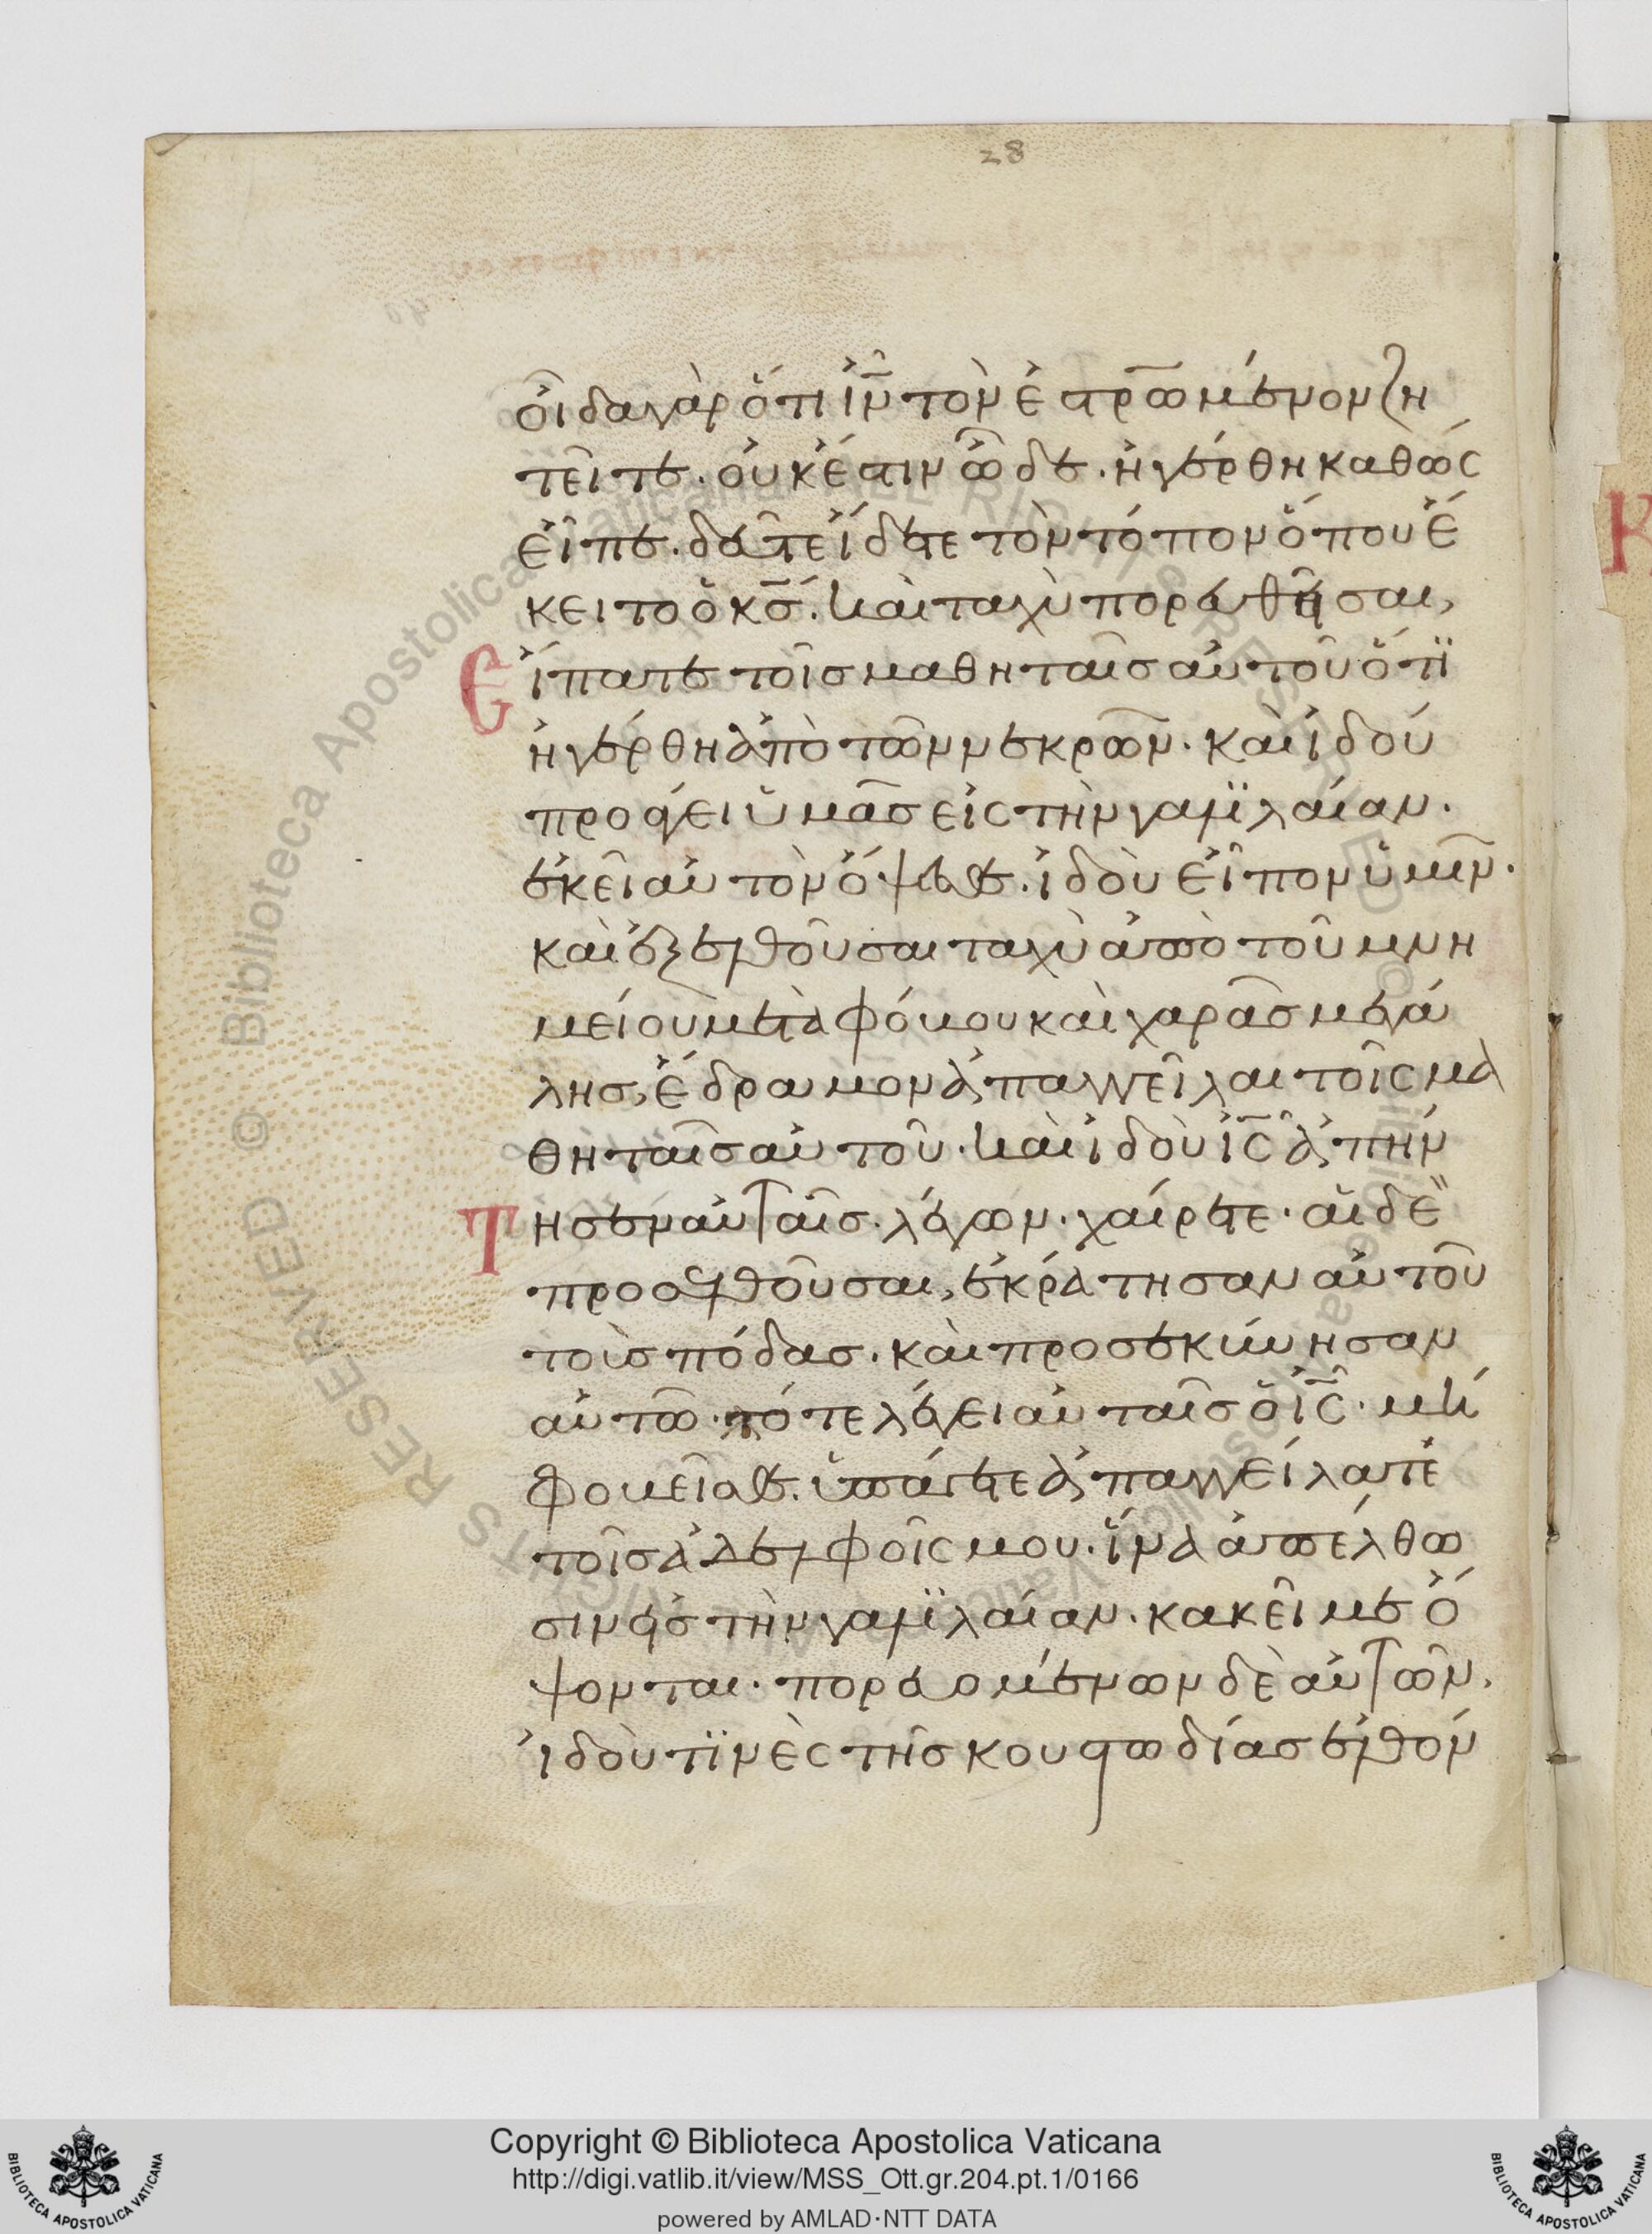 28
οἶδα γὰρ ὅτι ἰῦν τὸν ἐσταυρωμένον ζη
τεῖτε. οὐκ ἔστιν ὧδε. ἠγέρθη καθὼς
εἶπε. δεῦτε ἴδετε τὸν τόπον ὅπου ἔ
κειτο ὁ κσ. καὶ ταχὺ πορευθεῖσαι,
Εἴπατε τοῖς μαθηταῖς αὐτοῦ ὅτϊ
ἠγέρθη ἀπὸ τῶν νεκρῶν. καὶ ἰδοὺ
προάγει ὑμᾶς εἰς τὴν γαλϊλαίαν.
ἐκεῖ αὐτὸν ὄψεσθε. ἰδοὺ εἶπον ὑμῖν.
καὶ ἐξελθοῦσαι ταχὺ ἀπὸ τοῦ μνη
μείου μετὰ φόβου καὶ χαρᾶς μεγά
λης, ἔδραμον ἀπαγγεῖλαι τοῖς μα
θηταῖς αὐτοῦ. καὶ ἰδοὺ ἰς ἀπήν
Τησεν αὐταῖς. λέγων. χαίρετε. αἱ δὲ
προσελθοῦσαι, ἐκράτησαν αὐτοῦ
τοὺς πόδας. καὶ προσεκύνησαν
αὐτῶ. τότε λέγει αὐταῖς ὁ ἰς. μὴ
φοβεῖσθε. ὑπάγετε ἀπαγγείλατε
τοῖς ἀδελφοῖς μου. ἵνα ἀπέλθω
σιν εἰς τὴν γαλϊλαίαν. κακεῖ με ὄ
ψονται. πορευομένων δὲ αὐτῶν.
ἰδού τϊνὲς τῆς κουστωδίας ἐλθόν
© Biblioteca Apostolica Vaticana ALL RIGHTS RESERVED
© Biblioteca Apostolica Vaticana ALL RIGHTS RESERVED
Copyright © Biblioteca Apostolica Vaticana
http://digi.vatlib.it/view/MSS_Ott.gr.204.pt.1/0166
powered by AMLAD·NTT DATA
BIBLIOTECA APOSTOLICA VATICANA
BIBLIOTECA APOSTOLICA VATICANA